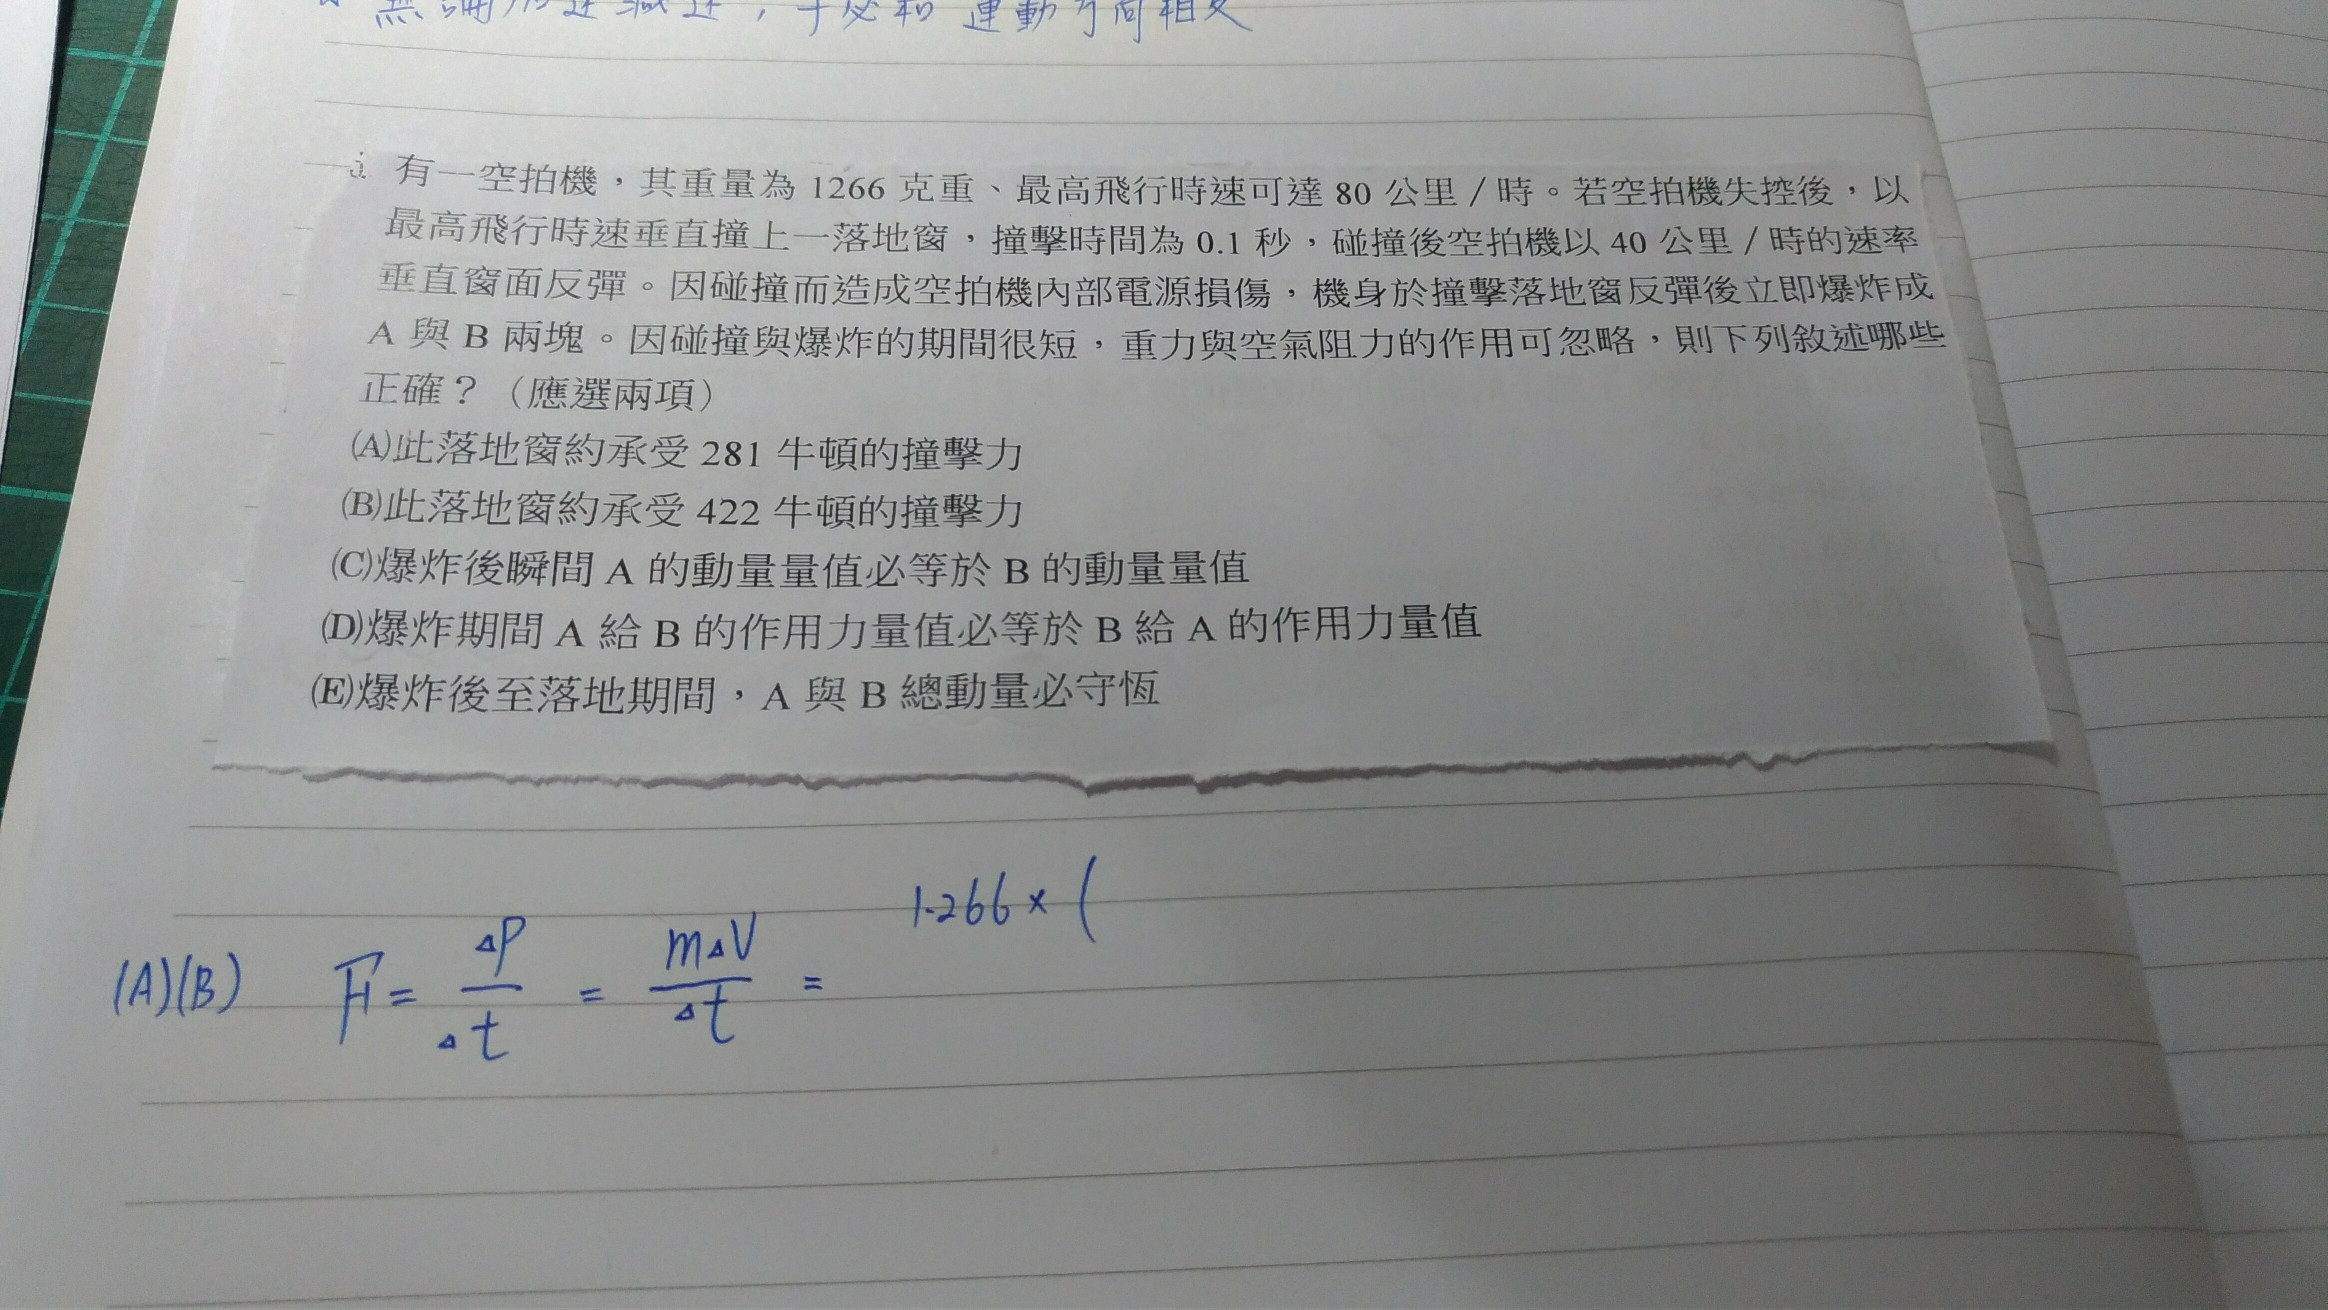 運動方向相反
有一空拍機，其重量為 1266 克重、最高飛行時速可達 80 公里／時。若空拍機失控後，以
最高飛行時速垂直撞上一落地窗，撞擊時間為 0.1 秒，碰撞後空拍機以 40 公里／時的速率
垂直窗面反彈。因碰撞而造成空拍機內部電源損傷，機身於撞擊落地窗反彈後立即爆炸成
A 與 B 兩塊。因碰撞與爆炸的期間很短，重力與空氣阻力的作用可忽略，則下列敘述哪些
正確？（應選兩項）
(A)此落地窗約承受 281 牛頓的撞擊力
(B)此落地窗約承受 422 牛頓的撞擊力
(C)爆炸後瞬間 A 的動量量值必等於 B 的動量量值
(D)爆炸期間 A 給 B 的作用力量值必等於 B 給 A 的作用力量值
(E)爆炸後至落地期間，A 與 B 總動量必守恆
(A)(B) F = ΔP/Δt = mΔV/Δt = 1.266 × (